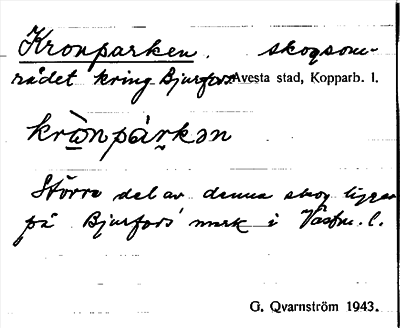 Kronparken. skogsom-
rådet kring Bjurfors Avesta stad, Kopparb. l.
krὼnpárkən
Större del av denna skog ligger
på Bjurfors' mark i Västm. l.
G. Qvarnström 1943.